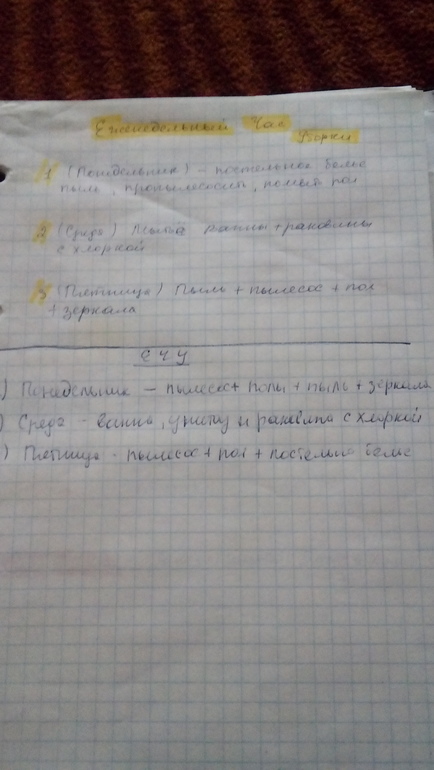 Еженедельный Час
Уборки
1 (Понедельник) – постельное белье
пыль, пропылесосить, помыть пол
3 (Среда) Мытьё ванны + раковины
с хлоркой
5 (Пятница) Пыль + пылесос + пол
+ зеркала
ЕЧУ
) Понедельник – пылесос + полы + пыль + зеркала
) Среда - ванна, унитаз и раковина с хлоркой
) Пятница - пылесос + пол + постельно белье